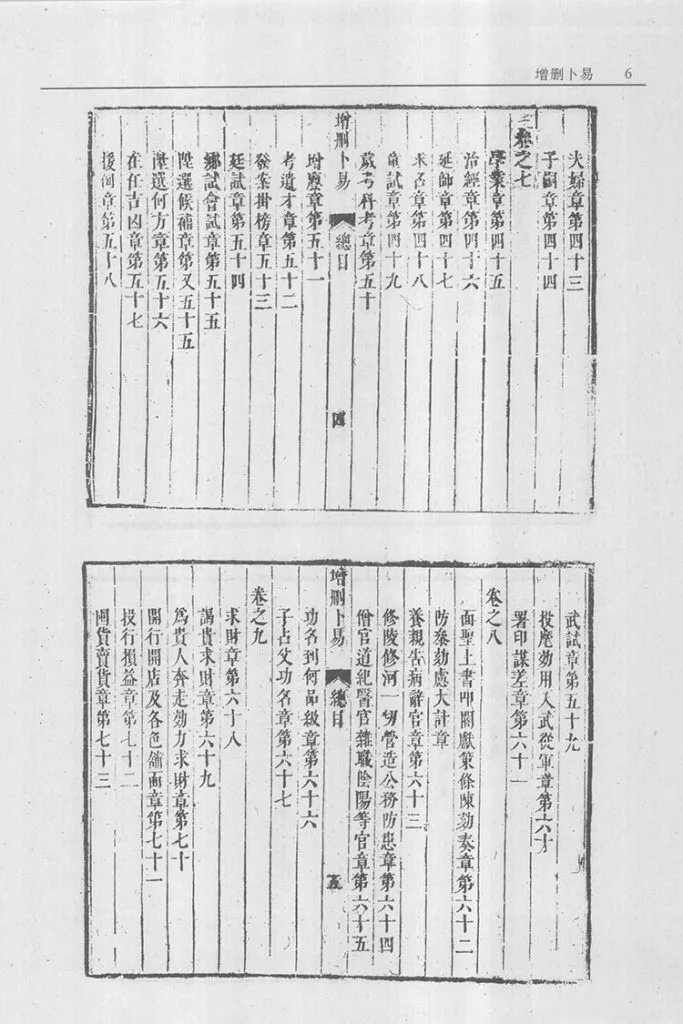 增删卜易 6
夫婦章第四十三
子嗣章第四十四
卷之七
學業章第四十五
治經章第四十六
延師章第四十七
求名章第四十八
童試章第四十九
歲考科考章第五十
增刪卜易 總目 四
增廩章第五十一
考遺才章第五十二
發案掛榜章五十三
廷試章第五十四
鄉試會試章第五十五
陞選候補章第又五十五
陞選何方章第五十六
在任吉凶章第五十七
援例章第五十八
武試章第五十九
投麾効用入武從軍章第六十
署印謀差章第六十一
卷之八
面聖上書叩閽獻策條陳劾奏章第六十二
防參劾慮大計章
養親告病辭官章第六十三
修陵修河一切營造公務防患章第六十四
僧官道紀醫官雜職陰陽等官章第六十五
增刪卜易 總目 五
功名到何品級章第六十六
子占父功名章第六十七
卷之九
求財章第六十八
謁貴求財章第六十九
為貴人奔走効力求財章第七十
開行開店及各色舖面章第七十一
投行損益章第七十二
囤貨賣貨章第七十三